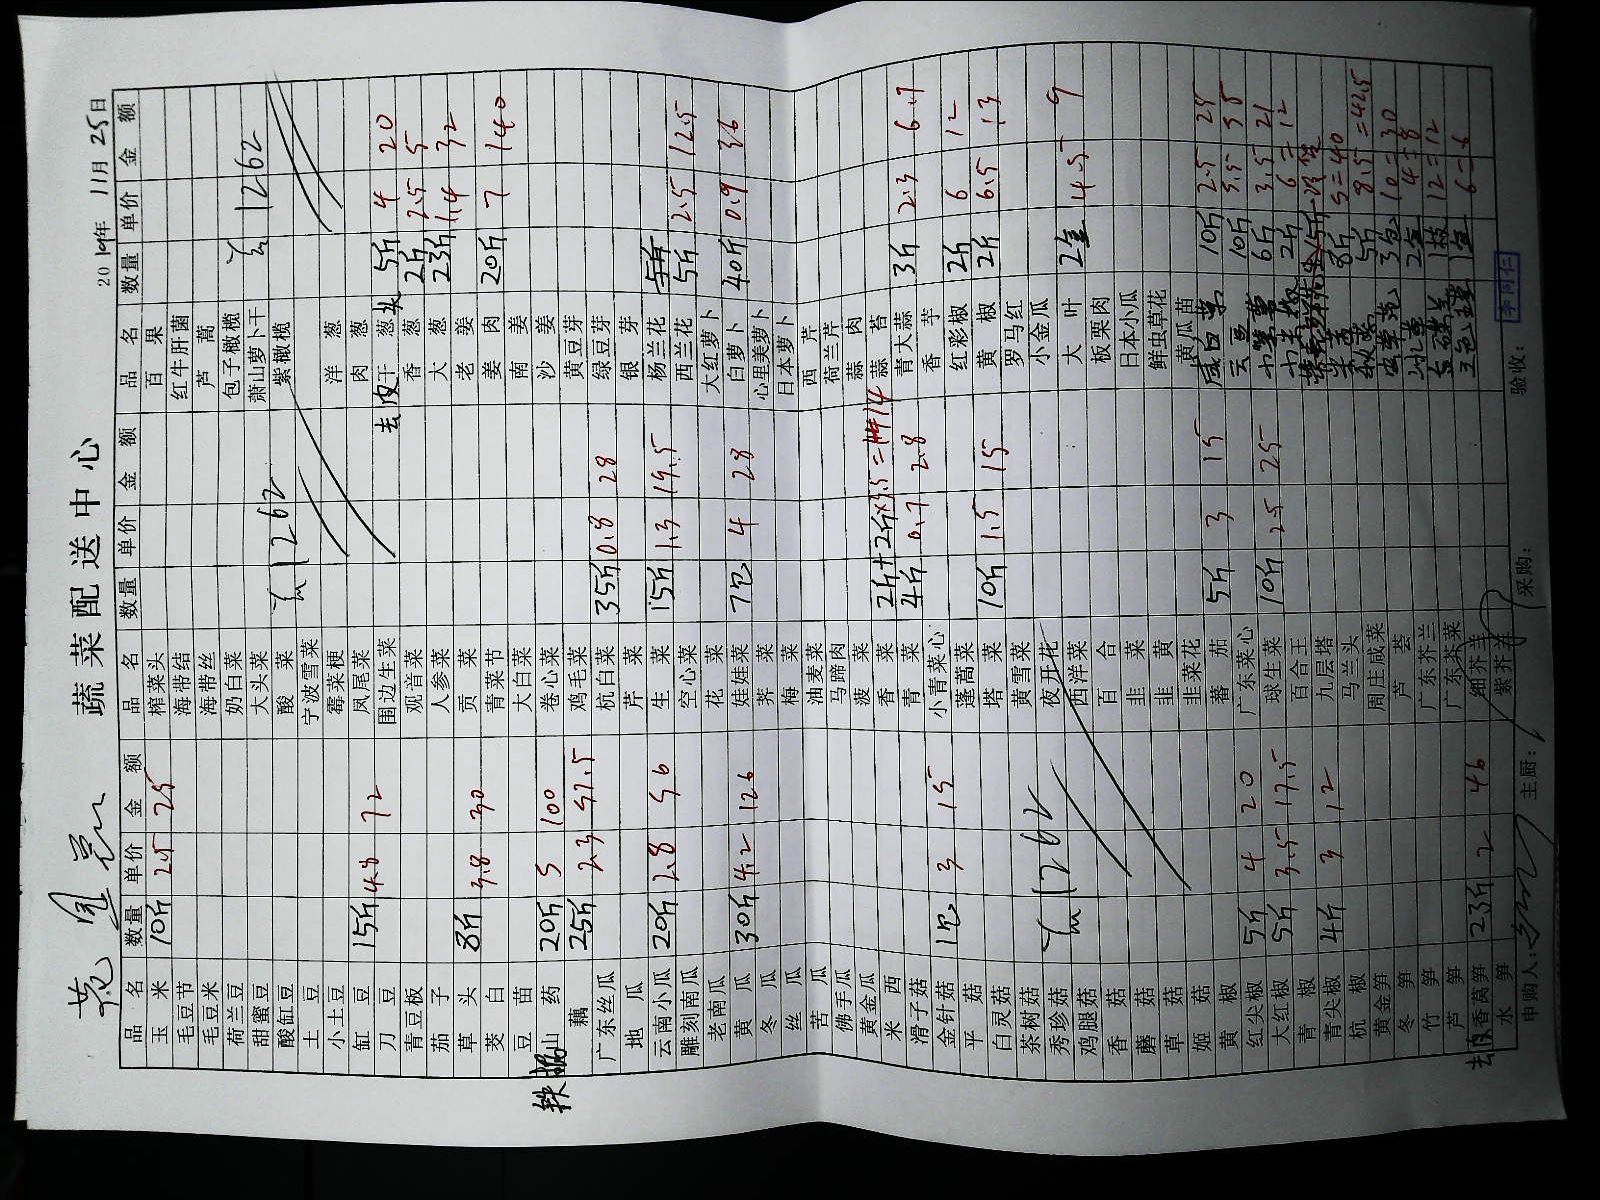 蔬菜配送中心
2019年 11月 25日
品名 数量 单价 金额
玉米 10斤 2.5 25
毛豆节
毛豆米
荷兰豆
甜蜜豆
酸缸豆
土豆
小土豆
缸豆 15斤 4.8 72
刀豆
青豆板
茄子
草头 8斤 3.8 30
茭白
豆苗
铁棍山药 20斤 5 100
藕 25斤 2.3 57.5
广东丝瓜
地瓜
云南小瓜 20斤 2.8 56
雕刻南瓜
老南瓜
黄瓜 30斤 4.2 126
冬瓜
丝瓜
苦瓜
佛手瓜
黄金瓜
米西
滑子菇
金针菇 1包 3 15
平菇
白灵菇
茶树菇
秀珍菇 1262
鸡腿菇
香菇
蘑菇
草菇
姬菇
黄椒
红尖椒 5斤 4 20
大红椒 5斤 3.5 17.5
青椒
青尖椒 4斤 3 12
杭椒
黄金笋
冬笋
竹笋
芦笋
去皮香莴笋 23斤 2 46
水笋
品名 数量 单价 金额
榨菜头
海带结
海带丝
奶白菜
大头菜
酸菜 1262
宁波雪菜
霉菜梗
凤尾菜
围边生菜
观音菜
人参菜
贡菜
青菜节
大白菜
卷心菜
鸡毛菜
杭白菜 35斤 0.8 28
芹菜
生菜 15斤 1.3 19.5
空心菜
花菜
娃娃菜 7包 4 28
荠菜
梅菜
油麦菜
马蹄肉
菠菜
香菜 2斤+2斤×3.5=14
青菜 4斤 0.7 2.8
小青菜心
蓬蒿菜
塔菜 10斤 1.5 15
黄雪菜
夜开花
西洋菜
百合
韭菜
韭黄
韭菜花
蕃茄 5斤 3 15
广东菜心
球生菜 10斤 2.5 25
百合王
九层塔
马兰头
周庄咸菜
芦荟
广东芥兰
广东芥菜
细芥羊
紫芥羊
品名 数量 单价 金额
百果
红牛肝菌
芦蒿
包子橄榄 1262
萧山萝卜干
紫橄榄
洋葱
肉葱
去皮干葱头 5斤 4 20
香葱 2斤 2.5 5
大葱 23斤 1.4 32
老姜
姜肉 20斤 7 140
南姜
沙姜
黄豆芽
绿豆芽
银芽
杨兰花
西兰花 5斤 2.5 12.5
大红萝卜
白萝卜 40斤 0.9 36
心里美萝卜
日本萝卜
西芹
荷兰芹
蒜肉
蒜苔
青大蒜 3斤 2.3 6.7
香芋
红彩椒 2斤 6 12
黄椒 2斤 6.5 13
罗马红
小金瓜
大叶 2盒 4.5 9
板栗肉
日本小瓜
鲜虫草花
黄瓜苗
10斤 2.5 25
10斤 5.5 55
6斤 3.5 21
2斤 6=12
15斤
8斤 5=40
5斤 8.5=42.5
3包 10=30
2盒 4=8
1枝 12=12
1盒 6=6
申购人: 主厨: 采购: 验收: